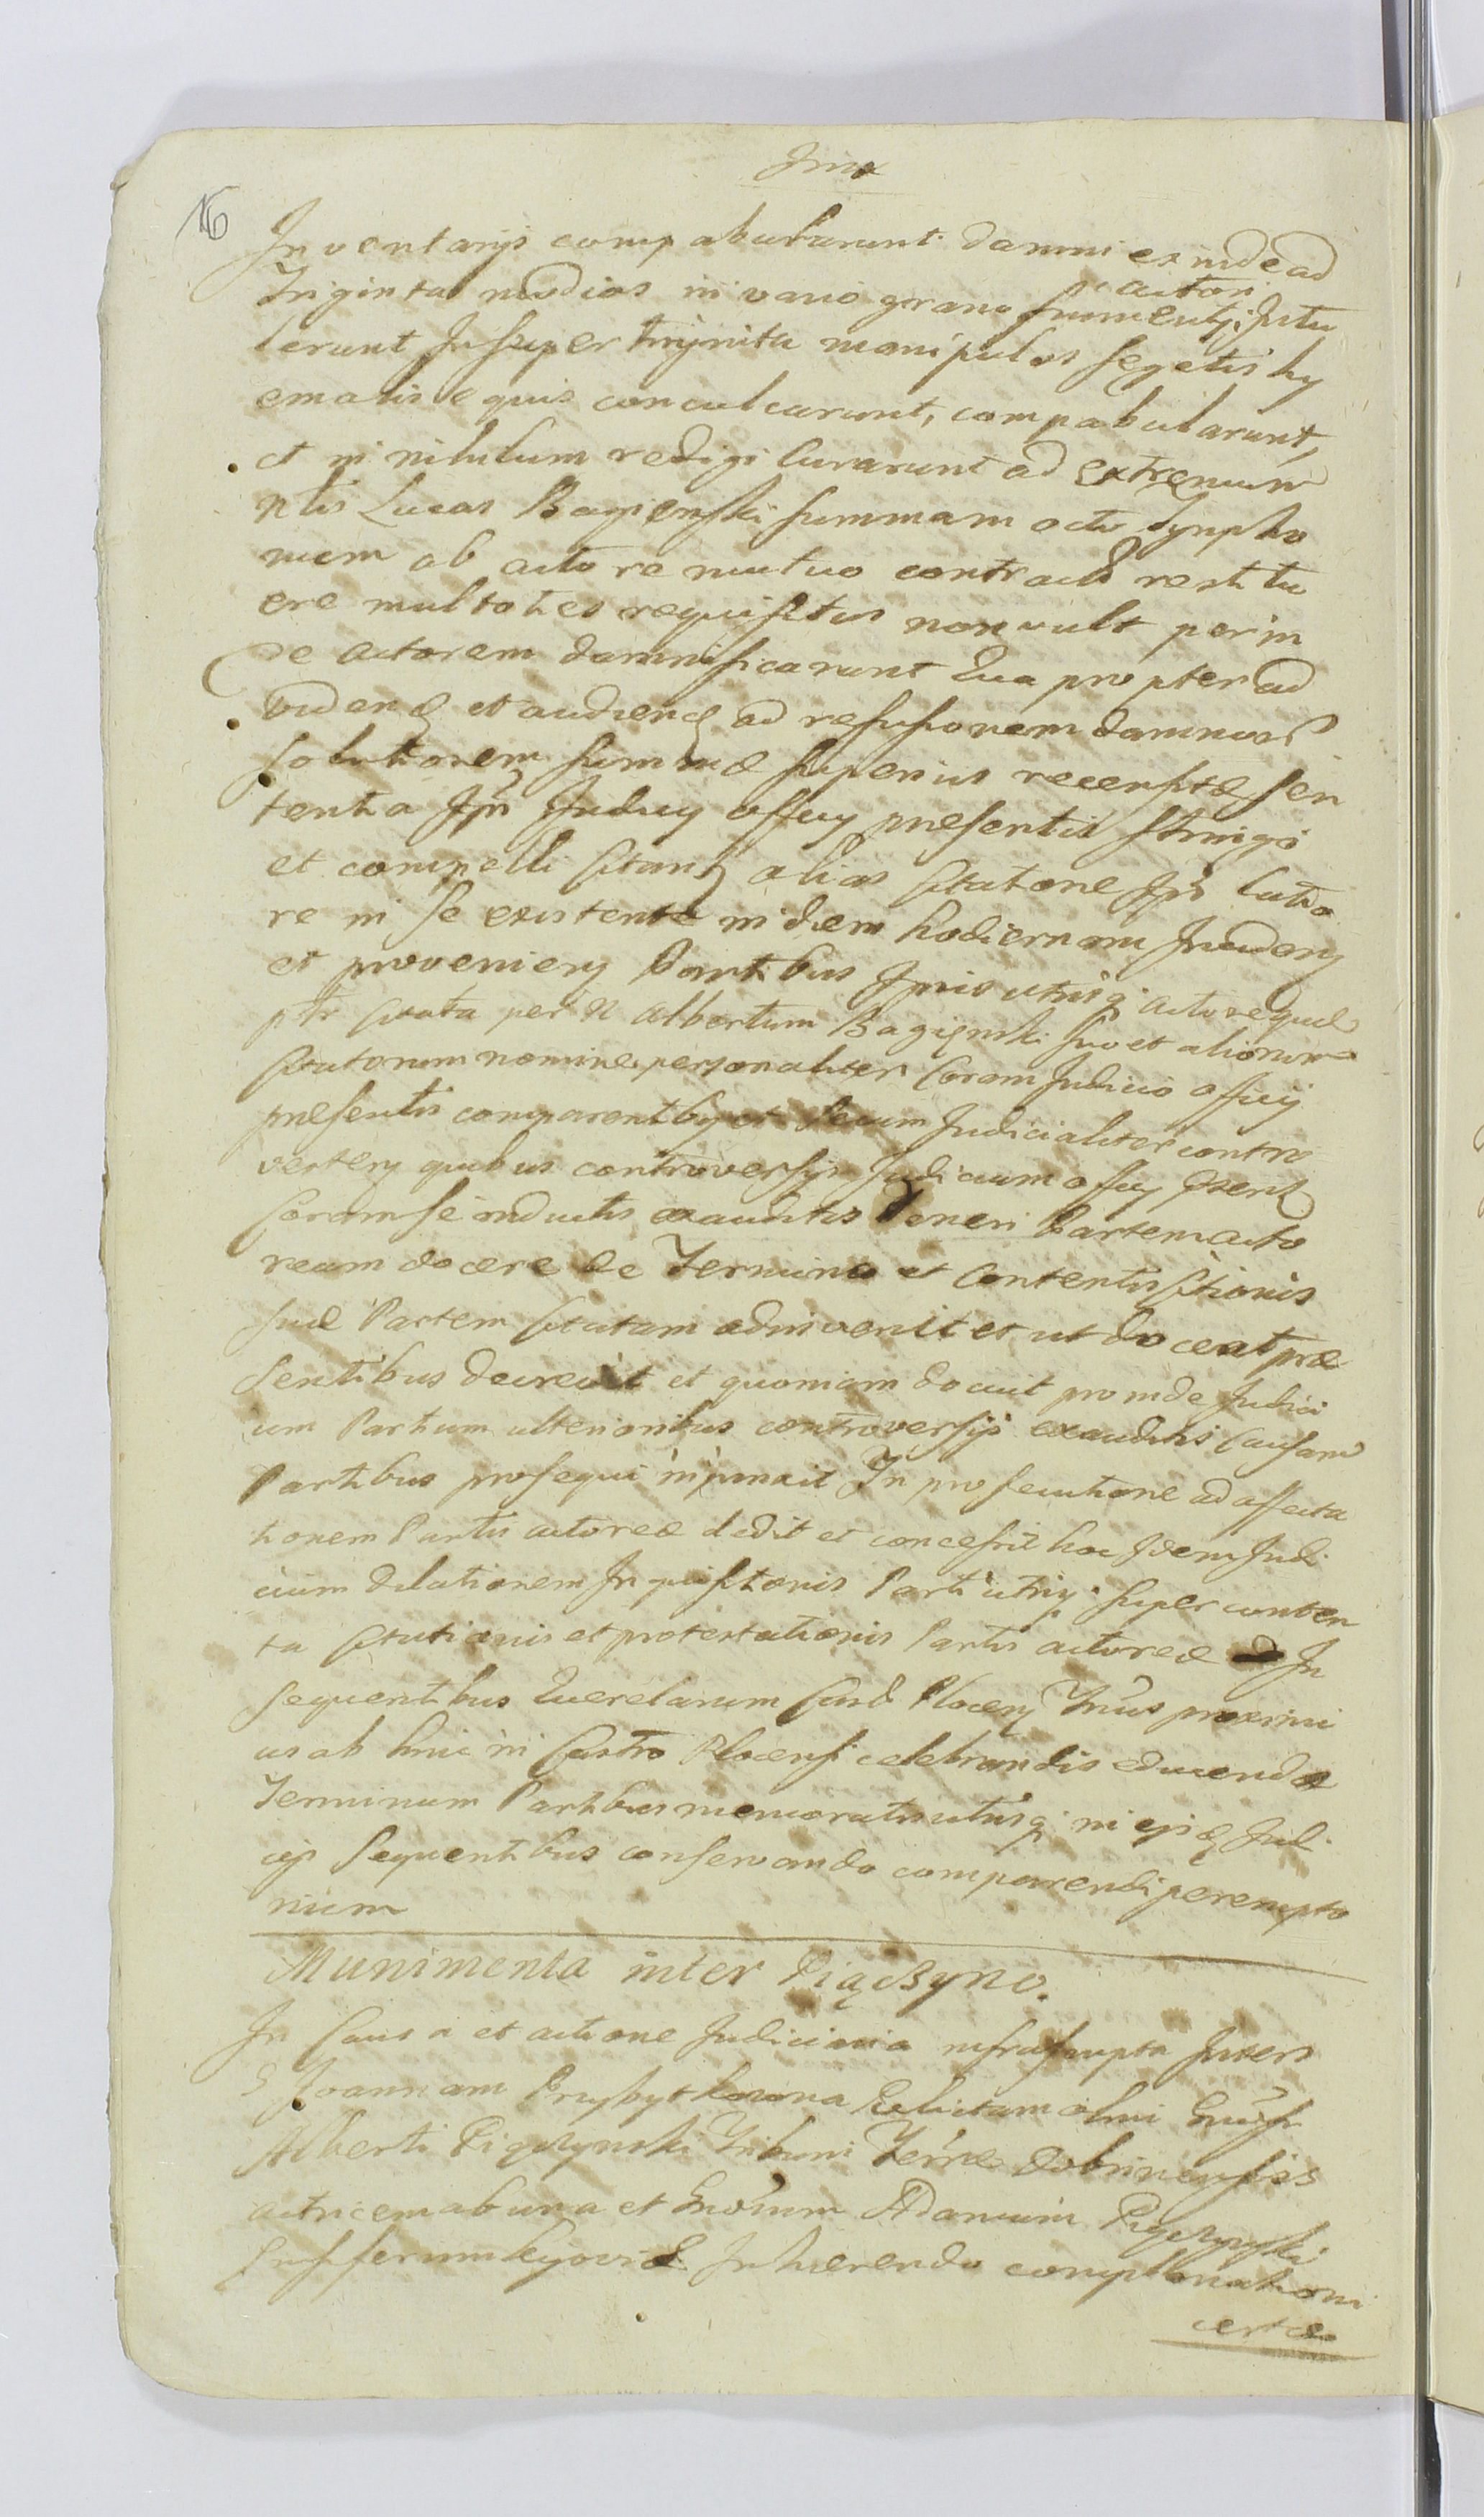 16
Inventarijs compabularunt damni exinde ad
Triginta modios in vario grano frumenti actori Intu
lerunt Insuper triginta manipulos segetis hy
emalis equis conculcarunt, compabularunt,
et in nihilum redigi curarunt ad extremum
Nlis Lucas Bagienski summam octo Tympho
num ab actore mutuo contractā restitu
ere multoties requisitus non vult perin
de actorem damnificarunt Qua propter ad
videnđ et audienđ ad refusionem damnorū
solutionem summæ superius recensitæ sen
tentia Judicij officij præsentis stringi
et compelli citantur alias citatione latio
re in se existente in diem hodiernam Inciden
et provenien Partibus Ipsis utrisq; actorea
citata per N Albertum Bagienski suo et aliorum
citatorum nomine personaliter Coram Judicio officij
præsentis comparentibus et secum Judicialiter contro
verten quibus controversijs Judicium officij
coram se inductis exauditis Teneri Partem acto
ream docere de Termino et Contentis citationis
suæ Partem citatam adinvenit et ut doceat præ
sentibus decrevit et quoniam docuit proinde Judici
um Partium ulterioribus controversijs exauditis Causam
Partibus prosequi injunxit In prosecutione ad affecta
tionem Partis actoreæ dedit et concessit hoc Idem Judi
cium dilationem Inquisitionis Parti utriq; super conten
ta citationis et protestationis Partis actoreæ In
sequentibus Querelarum Plocen proximi
us ab hinc in Castro Plocensi celebrandis educendā
Terminum Partibus memoratis utrisq; in Judi
cijs sequentibus conservando comparendi perempto
rium
Munimenta inter Piączyno.
In Causa et actione Judiciaria infrascripta Inter
G Joannam Przybytkowna Relictam olim
Alberti Pigczynski Tribuni Terræ Dobrinensis
actricem ab una et Adamum Pigczynski
Ensiferum Kijoviæ Inhærendo complanationi
certæ